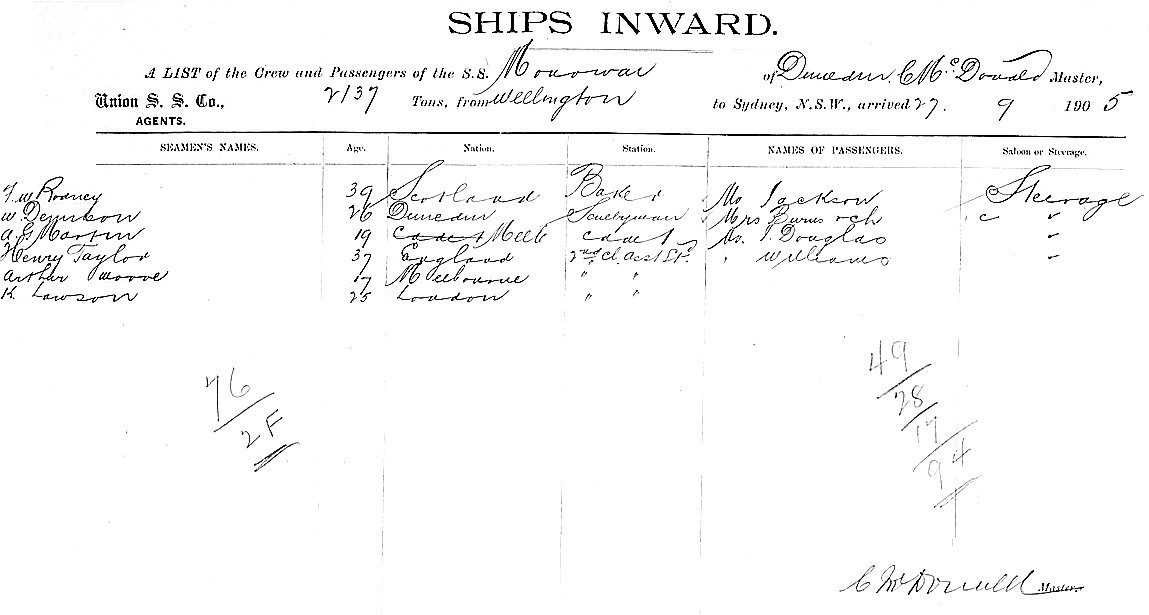 SHIPS INWARD.
A LIST of the Crew and Passengers of the S.S. Monowai of Dunedin, C McDonald Master,
Union S. S. Co., 2137 Tons, from Wellington to Sydney, N.S.W., arrived 27. 9 1905
AGENTS.
SEAMEN'S NAMES. Age. Nation. Station. NAMES OF PASSENGERS. Saloon or Steerage.
F.W Rodney 39 Scotland Baker Mr Jackson Steerage
W. Dennison 26 Dunedin Scullyman Mrs Burns & ch " "
A.G Martin 19 Cadet Melb Cadet Mr. J. Douglas "
Henry Taylor 37 England 2nd Cl. Asst St. " Williams "
Arthur Moore 17 Melbourne " "
K. Lawson 25 London " "
76
2F
49
28
17
94
C McDonald Master.